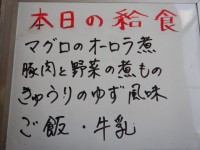 本日の給食
マグロのオーロラ煮
豚肉と野菜の煮もの
きゅうりのゆず風味
ご飯・牛乳